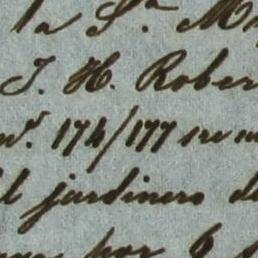 la S.ª M
J. H. Rober
n.º 174/177 se
l jardinero d
por 6